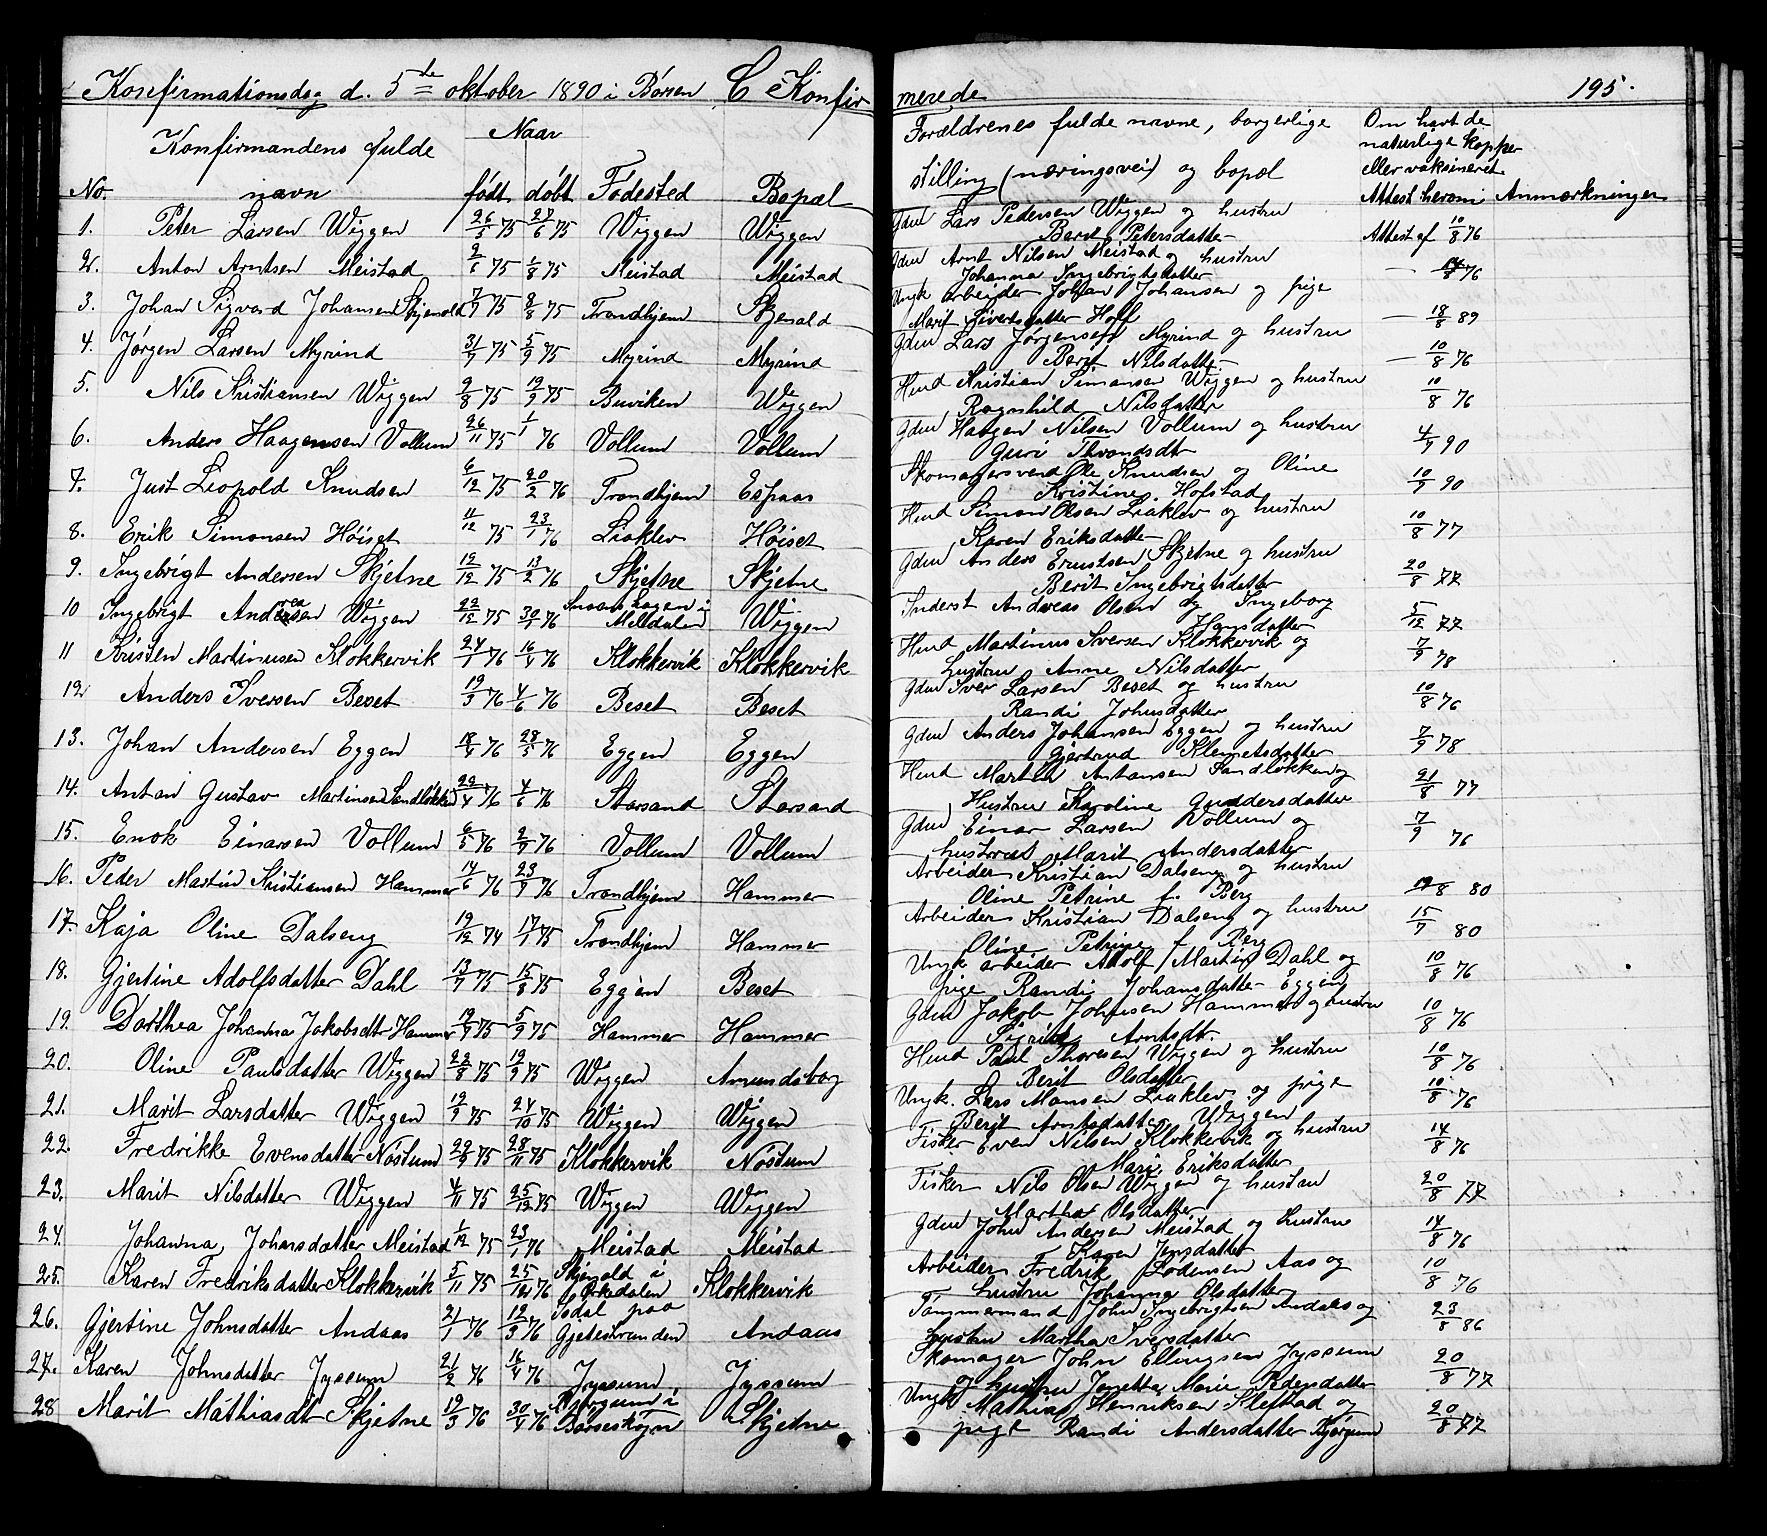 Konfirmationsdag d. 5te oktober 1890 i Børsen C. Konfirmerede 195.
No. Konfirmandens fulde navn Naar født døbt Fødested Bopæl Forældrenes fulde navne, borgerlige stilling (næringsvei) og bopæl Om havt de naturlige kopper eller vaksineret Attest herom Anmærkninger
1. Peter Larsen Wiggen 26/5 75 27/6 75 Wiggen Wiggen Gdm Lars Pedersen Wiggen og hustru Berit Petersdatter Attest af 10/8 76
2. Anton Arntsen Meistad 2/6 75 1/8 75 Meistad Meistad Gdm Arnt Nilsen Meistad og hustru Johanna Ingebrigtsdatter — 76
3. Johan Sigvard Johansen Skjenald 7/7 75 8/8 75 Trondhjem Skjenald Ungk arbeider Johan Johansen og pige Marit Sivertsdatter Hoff — 18/8 89
4. Jørgen Larsen Myrind 31/7 75 5/9 75 Myrind Myrind Gdm Lars Jørgensen Myrind og hustru Berit Nilsdatter — 10/8 76
5. Nils Kristiansen Wiggen 9/8 75 19/9 75 Buviken Wiggen Husmd Kristian Simonsen Wiggen og hustru Ragnhild Nilsdatter 10/8 76
6. Anders Haagensen Vollum 26/11 75 1/1 76 Vollum Vollum Gdm Haagen Nilsen Vollum og hustru Guri Throndsdt 4/9 90
7. Just Leopold Knudsen 6/12 75 20/2 76 Trondhjem Espaas Skomagersvend Ole Knudsen og Oline Kristine Hofstad 10/9 90
8. Erik Simonsen Høiset 11/12 75 23/1 76 Liaklev Høiset Husmd Simon Olsen Liaklev og hustru Karen Eriksdatter 10/8 77
9. Ingebrigt Andersen Skjetne 12/12 75 13/2 76 Skjetne Skjetne Gdm Anders Erntsen Skjetne og hustru Berit Ingebrigtsdatter 20/8 77
10 Ingebrigt Andersen Wiggen 22/12 75 30/1 76 i Meldalen Wiggen Inderst Andreas Olsen og Ingeborg Hansdatter 5/12 77
11 Kristen Martinusen Klokkervik 24/1 76 16/4 76 Klokkervik Klokkervik Husmd Martinus Iversen Klokkervik og hustru Anne Nilsdatter 7/9 78
12 Anders Iversen Beset 19/3 76 4/6 76 Beset Beset Gdm Iver Larsen Beset og hustru Randi Johnsdatter 10/8 76
13. Johan Andersen Eggen 18/4 76 28/5 76 Eggen Eggen Gdm Anders Johansen Eggen og hustru Gjertrud Klemetsdatter 7/9 78
14. Anton Gustav Martinsen Sandløkken 22/4 76 4/6 76 Storsand Storsand Husmd Martin Antonsen Sandløkken og Hustru Karoline Guddersdatter 21/8 77
15. Enok Einarsen Vollum 6/5 76 2/7 76 Vollum Vollum Gdm Einar Larsen Vollum og hustru Marit Andersdatter 7/9 76
16. Peder Martin Kristiansen Hammer 14/6 76 23/7 76 Trondhjem Hammer Arbeider Kristian Dalseng og hustru Oline Petrine f. Berg 80
17. Kaja Oline Dalseng 19/12 74 17/1 75 Trondhjem Hammer Arbeider Kristian Dalseng og hustru Oline Petrine f. Berg 15/7 80
18. Gjertine Adolfsdatter Dahl 13/7 75 15/8 75 Eggen Beset Ungk arbeider Adolf Martin Dahl og pige Randi Johansdatter Eggen 10/8 76
19. Dorthea Johanna Jakobsdtr Hammer 19/7 75 5/9 75 Hammer Hammer Gdm Jakob Johnsen Hammer og hustru Sigrid Arntsdt. 10/8 76
20. Oline Paulsdatter Wiggen 22/8 75 19/9 75 Wiggen Amundsborg Husmd Paul Thoresen Wiggen og hustru Berit Olsdatter 10/8 76
21. Marit Larsdatter Wiggen 12/9 75 24/10 75 Wiggen Wiggen Ungk. Lars Monsen Liaklev og pige Berit Arntsdatter Wiggen 10/8 76
22. Fredrikke Evensdatter Nøstum 22/9 75 28/11 75 Klokkervik Nøstum Fisker Even Nilsen Klokkervik og hustru Mari Eriksdatter 14/8 76
23. Marit Nilsdatter Wiggen 4/11 75 25/12 75 Wiggen Wiggen Fisker Nils Olsen Wiggen og hustru Martha Olsdatter 20/8 77
24. Johanna Johnsdatter Meistad 1/12 75 23/1 76 Meistad Meistad Gdm John Andersen Meistad og hustru Karen Jensdatter 14/8 76
25. Karen Fredriksdatter Klokkervik 5/11 75 25/12 76 Skjenald i Orkedalen Klokkervik Arbeider Fredrik Lodensen Aas og hustru Johanna Olsdatter 10/8 76
26. Gjertine Johnsdatter Andaas 21/1 76 12/3 76 Isdal paa Gjetestranden Andaas Tømmermand John Ingebrigtsen Andaas og hustru Martha Iversdatter 23/8 86
27. Karen Johnsdatter Jyssum 21/2 76 16/4 76 Jyssum Jyssum Skomager John Ellingsen Jyssum og hustru Jonetta Marie Pedersdatter 20/8 77
28 Marit Mathiasdt Skjetne 19/3 76 30/4 76 Bjørgum i Børseskogn Skjetne Ungk Mathias Henriksen Klefstad og pige Randi Andersdatter Bjørgum 20/8 77